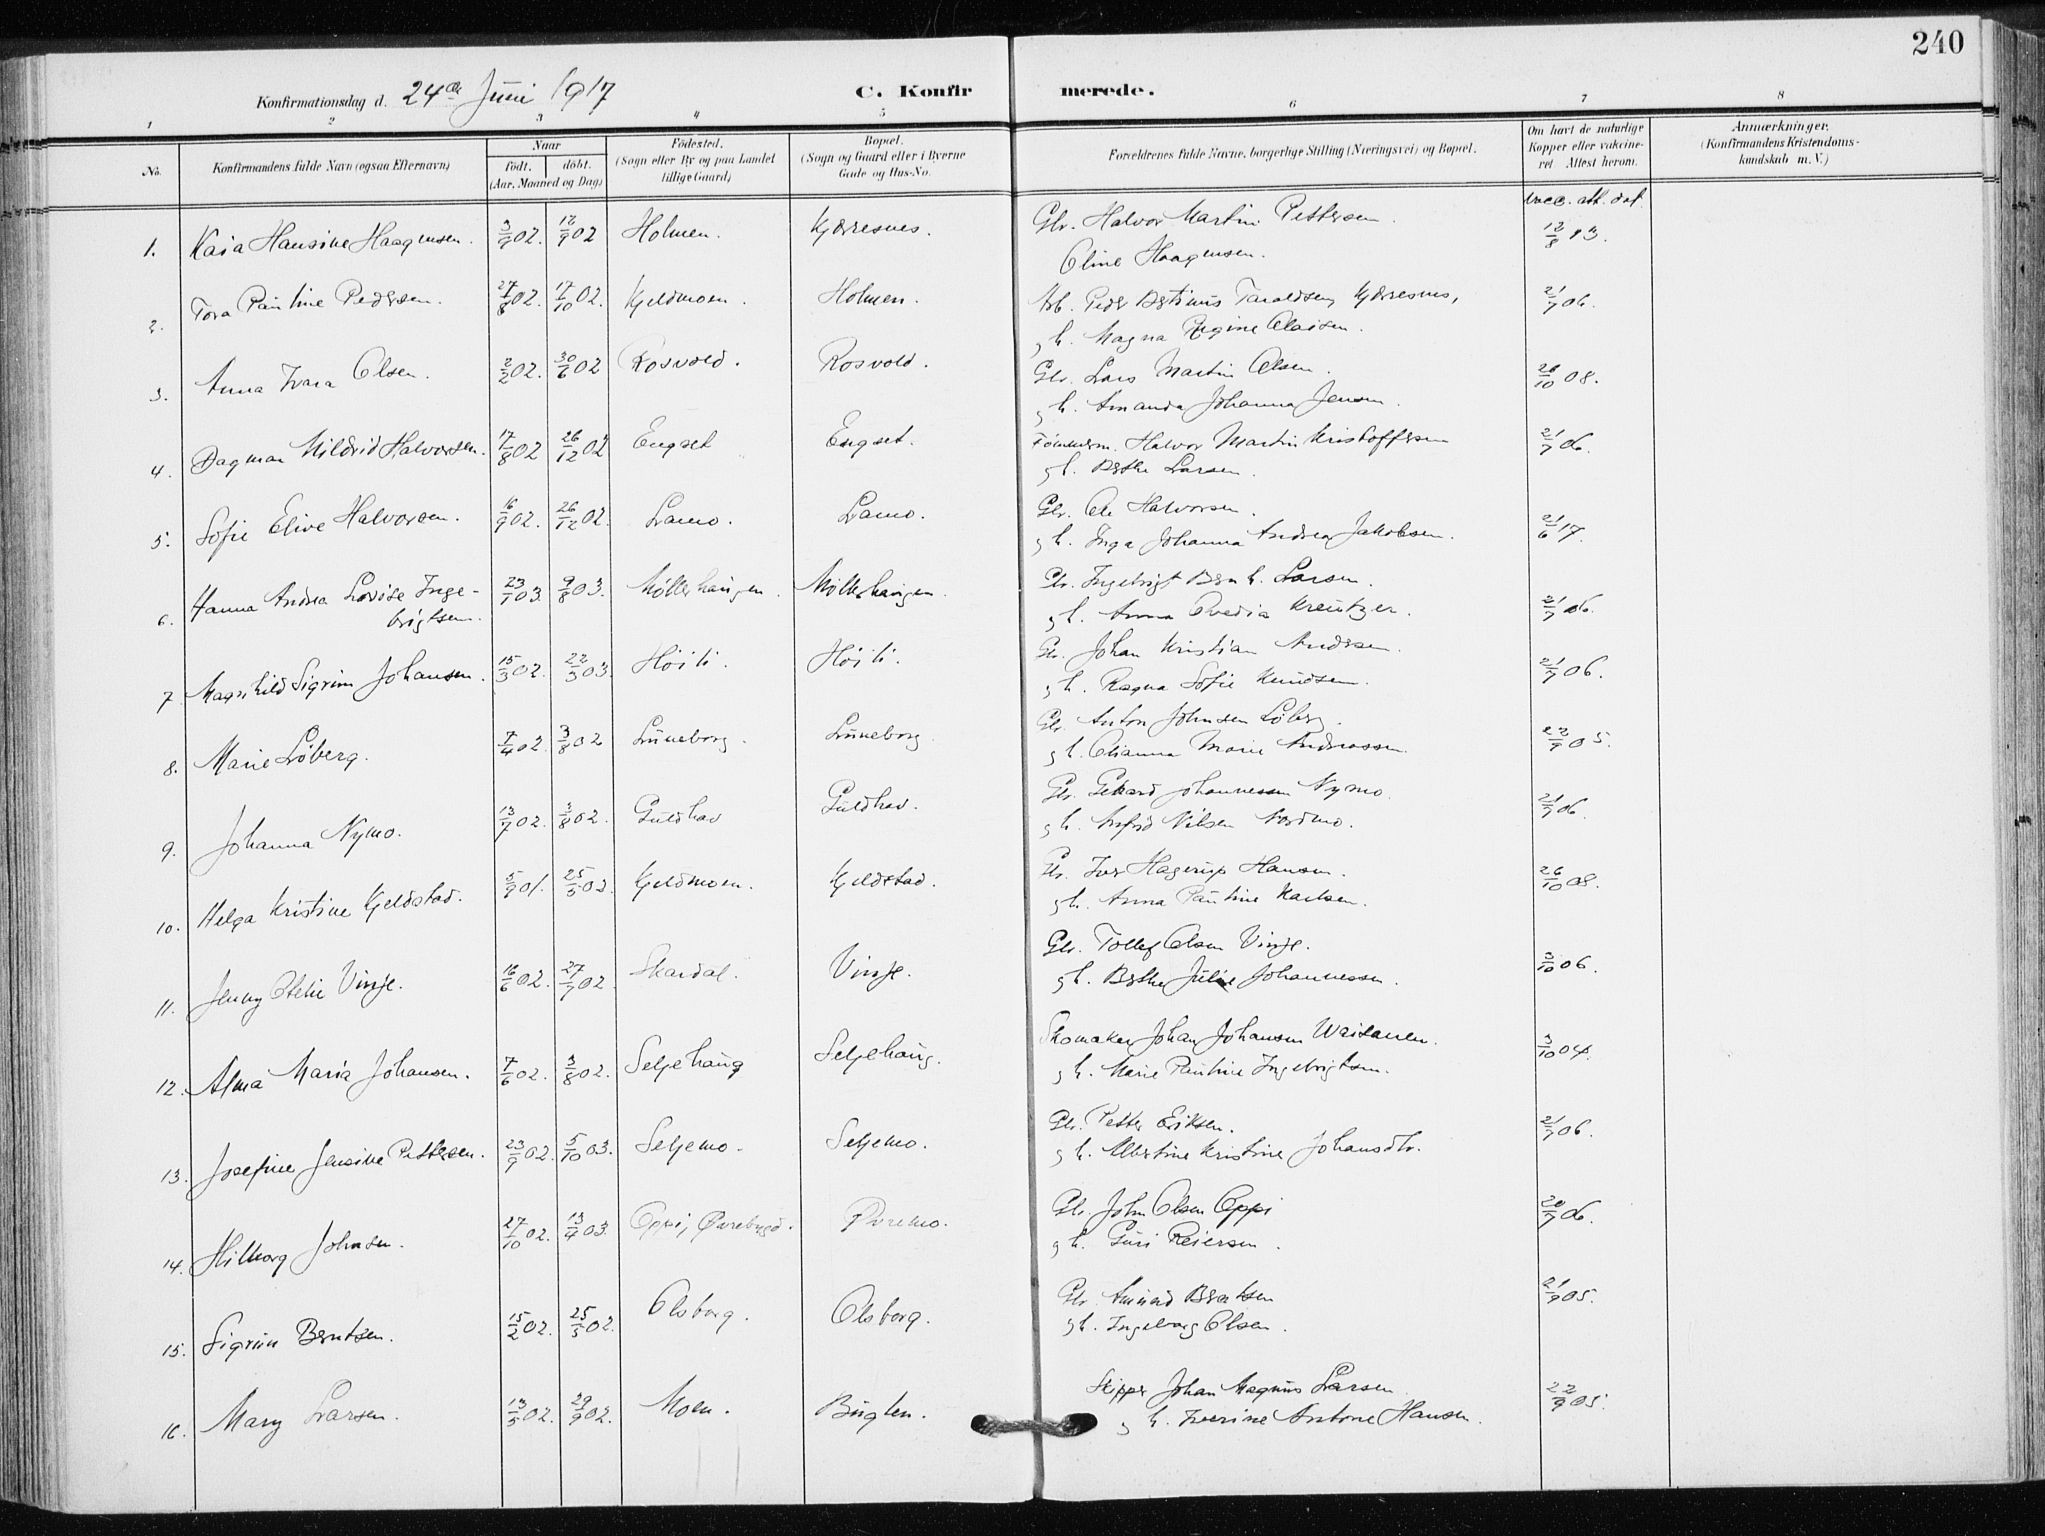 240
Konfirmationsdag d. 24de Juni 1917 C. Konfirmerede.
1 2 3 4 5 6 7 8
No. Konfirmandens fulde Navn (ogsaa Efternavn) Naar født. døbt. (Aar, Maaned og Dag) Fødested. (Sogn eller By og paa Landet tillige Gaard) Bopæl. (Sogn og Gaard eller i Byerne Gade og Hus-No. Forældrenes fulde Navne, borgerlige Stilling (Næringsvei) og Bopæl. Om havt de naturlige Kopper eller vaccineret Attest herom. Anmærkninger. (Konfirmandens Kristendomskundskab m. V.)
vacc. att. dat.
1. Kaia Hansine Haagensen. 3/9 02. 12/9 02 Holmen. Kjærresnes. Gbr. Halvor Martin Pettersen. 12/8 13.
Oline Haagensen.
2. Tora Pauline Pedersen. 27/8 02. 17/10 02. Kjeldmoen. Holmen. Arb. Peder Bertinus Taraldsen, Kjærresnes, 21/7 06.
g h. Magna Regine Olaisen.
3. Anna Ivara Olsen. 2/2 02. 30/6 02 Rosvold. Rosvold. Gbr. Lars Martin Olsen. 26/10 08.
g h. Amanda Johanna Jensen.
4. Dagmar Mildrid Halvorsen. 17/8 02 26/12 02 Engset Engset. Tømmerm. Halvor Martin Kristoffersen 21/7 06.
g h. Berthe Larsen.
5. Sofie Elive Halvorsen. 16/9 02. 26/12 02. Lamo. Lamo. Gbr. Ole Halvorsen. 21/6 17.
g h. Inga Johanna Andrea Jakobsen.
6. Hanna Andrea Lovise Ingebrigtsen. 23/1 03. 9/8 03. Møllerhaugen. Møllerhaugen. Gbr. Ingebrigt Bernh. Larsen. 21/7 06.
g h. Anna Ovedia Kreutzer.
7. Magnhild Sigrun Johansen. 15/3 02. 22/3 03. Höili. Höili. Gbr. Johan Kristian Andersen. 21/7 06.
g h. Ragna Sofie Knudsen.
8. Marie Løberg. 7/4 02. 3/8 02 Luneborg. Luneborg. Gbr. Anton Johnsen Løberg. 22/9 05.
g h. Olianna Marie Andreassen.
9. Johanna Nymo. 13/7 02. 3/8 02. Guldhav Guldhav. Gbr. Gerhard Johannessen Nymo. 21/7 06.
g h. Arfrid Nilsen Nordmo.
10. Helga Kristine Kjeldstad. 5/9 01. 25/5 02. Kjeldmoen. Kjeldstad. Gbr. Iver Hagerup Hansen. 26/10 08.
g h. Anna Pauline Karlsen.
11. Jenny Otelie Vinje. 16/6 02. 27/7 02. Skardal. Vinje. Gbr. Tollef Olsen Vinje. 3/10 06.
g h. Berthe Julie Johannessen.
12. Alma Maria Johansen. 7/6 02. 3/8 02. Seljehaug Seljehaug. Skomaker Johan Johansen Waisanen. 3/10 04.
g h. Marie Pauline Ingebrigtsen.
13. Josefine Jensine Pettersen. 23/9 02. 5/10 03. Seljemo. Seljemo. Gbr. Petter Eriksen. 21/7 06.
g h. Albertine Kristine Johansdtr.
14. Hilborg Johnsen. 27/10 02. 13/4 03. Oppi, Øvrebygd. Øvremo. Gbr. John Olsen Oppi 20/7 06.
g h. Guri Reiersen.
15. Sigrun Berntsen. 15/2 02. 25/5 02. Olsborg. Olsborg. Gbr. Amund Berntsen 21/9 05.
g h. Ingeborg Olsen.
16. Mary Larsen. 13/5 02. 29/9 02. Moen. Bugten. Skipper Johan Magnus Larsen. 22/9 05.
g h. Iverine Antone Hansen.